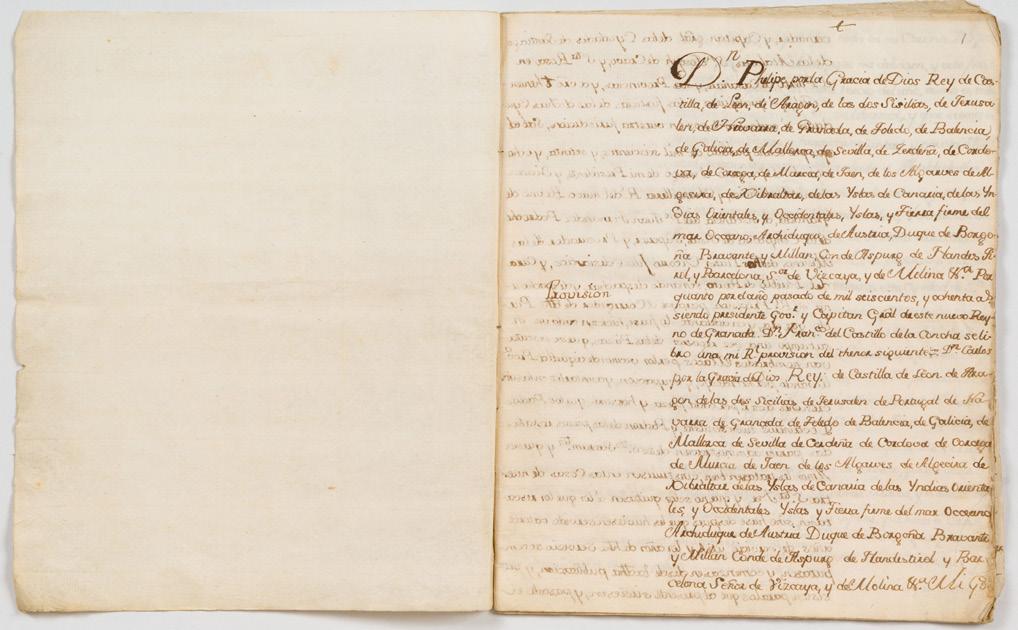 t
1
Dn. Phelipe por la Gracia de Dios Rey de Cas-
tilla, de Leon, de Aragon, de las dos Sisilias, de Jerusa
len, de Navarra, de Granada, de Toledo, de Balencia,
de Galicia, de Mallorca, de Sevilla, de Zerdeña, de Cordo-
va, de Corcega, de Murcia, de Jaen, de los Algarves de Al-
gecira, de Xibraltar, de las Yslas de Canaria, de las Yn
dias Orientales, y Occidentales, Yslas, y Tierra firme del
mar Occeano, Archiduque de Austria, Duque de Borgo-
ña, Bravante, y Millan, Conde Aspurg de Flandes Ti-
rol, y Barcelona, Sor. de Vizcaya, y de Molina &a. Por
Provision
quanto por el año pasado de mil seiscientos, y ochenta a
siendo presidente Govr. y Capitan Gral de este nuevo Rey-
no de Granada Dn. Franco. del Castillo de la Concha se li-
bro una mi Rl. provision del thenor siguiente = Dn. Carlos
por la Gracia de Dios Rey. de Castilla de Leon de Ara-
gon de las dos Sicilias de Jerusalen de Portugal de Na-
varra de Granada de Toledo de Balencia, de Galicia, de
Mallorca de Sevilla de Cerdeña de Cordova de Corcega
de Murcia de Jaen de los Algarves de Algecira de
Xibraltar de las Yslas de Canaria de las Yndias Orienta
les, y Occidentales Yslas y Tierra firme del mar Occeano
Archiduque de Austria Duque de Borgoña Bravante
y Millan Conde de Aspurg de Flandes tirol y Bar-
celona, Señor de Vizcaya, y de Molina &a.